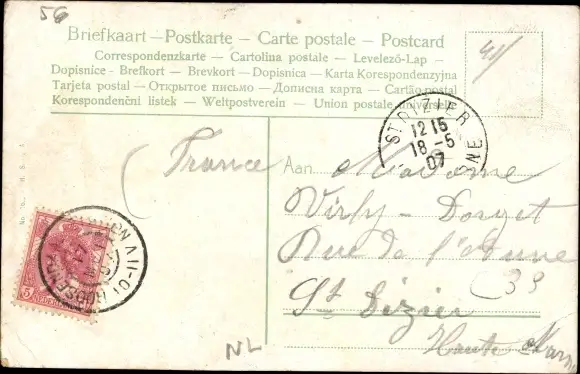 56
Briefkaart — Postkarte — Carte postale — Postcard
Correspondenzkarte — Cartolina postale — Levelező-Lap —
Dopisnice - Brefkort — Brevkort — Dopisnica — Karta Korespondenzyjna
Tarjeta postal — Открытое письмо — Дописна карта — Cartão postal
Korespondenční listek — Weltpostverein — Union postale universelle
ST DIZIER
12 15
18 - 5
07
France
Aan Madame
Rue de l'
39
St Dizier
Haute Marne
NL